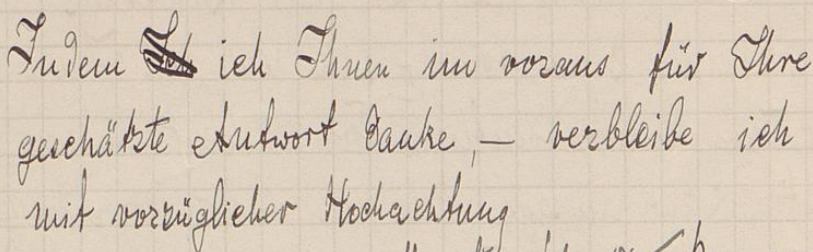 Indem ich Ihnen im voraus für Ihre
geschätzte Antwort danke, – verbleibe ich
mit vorzüglicher Hochachtung